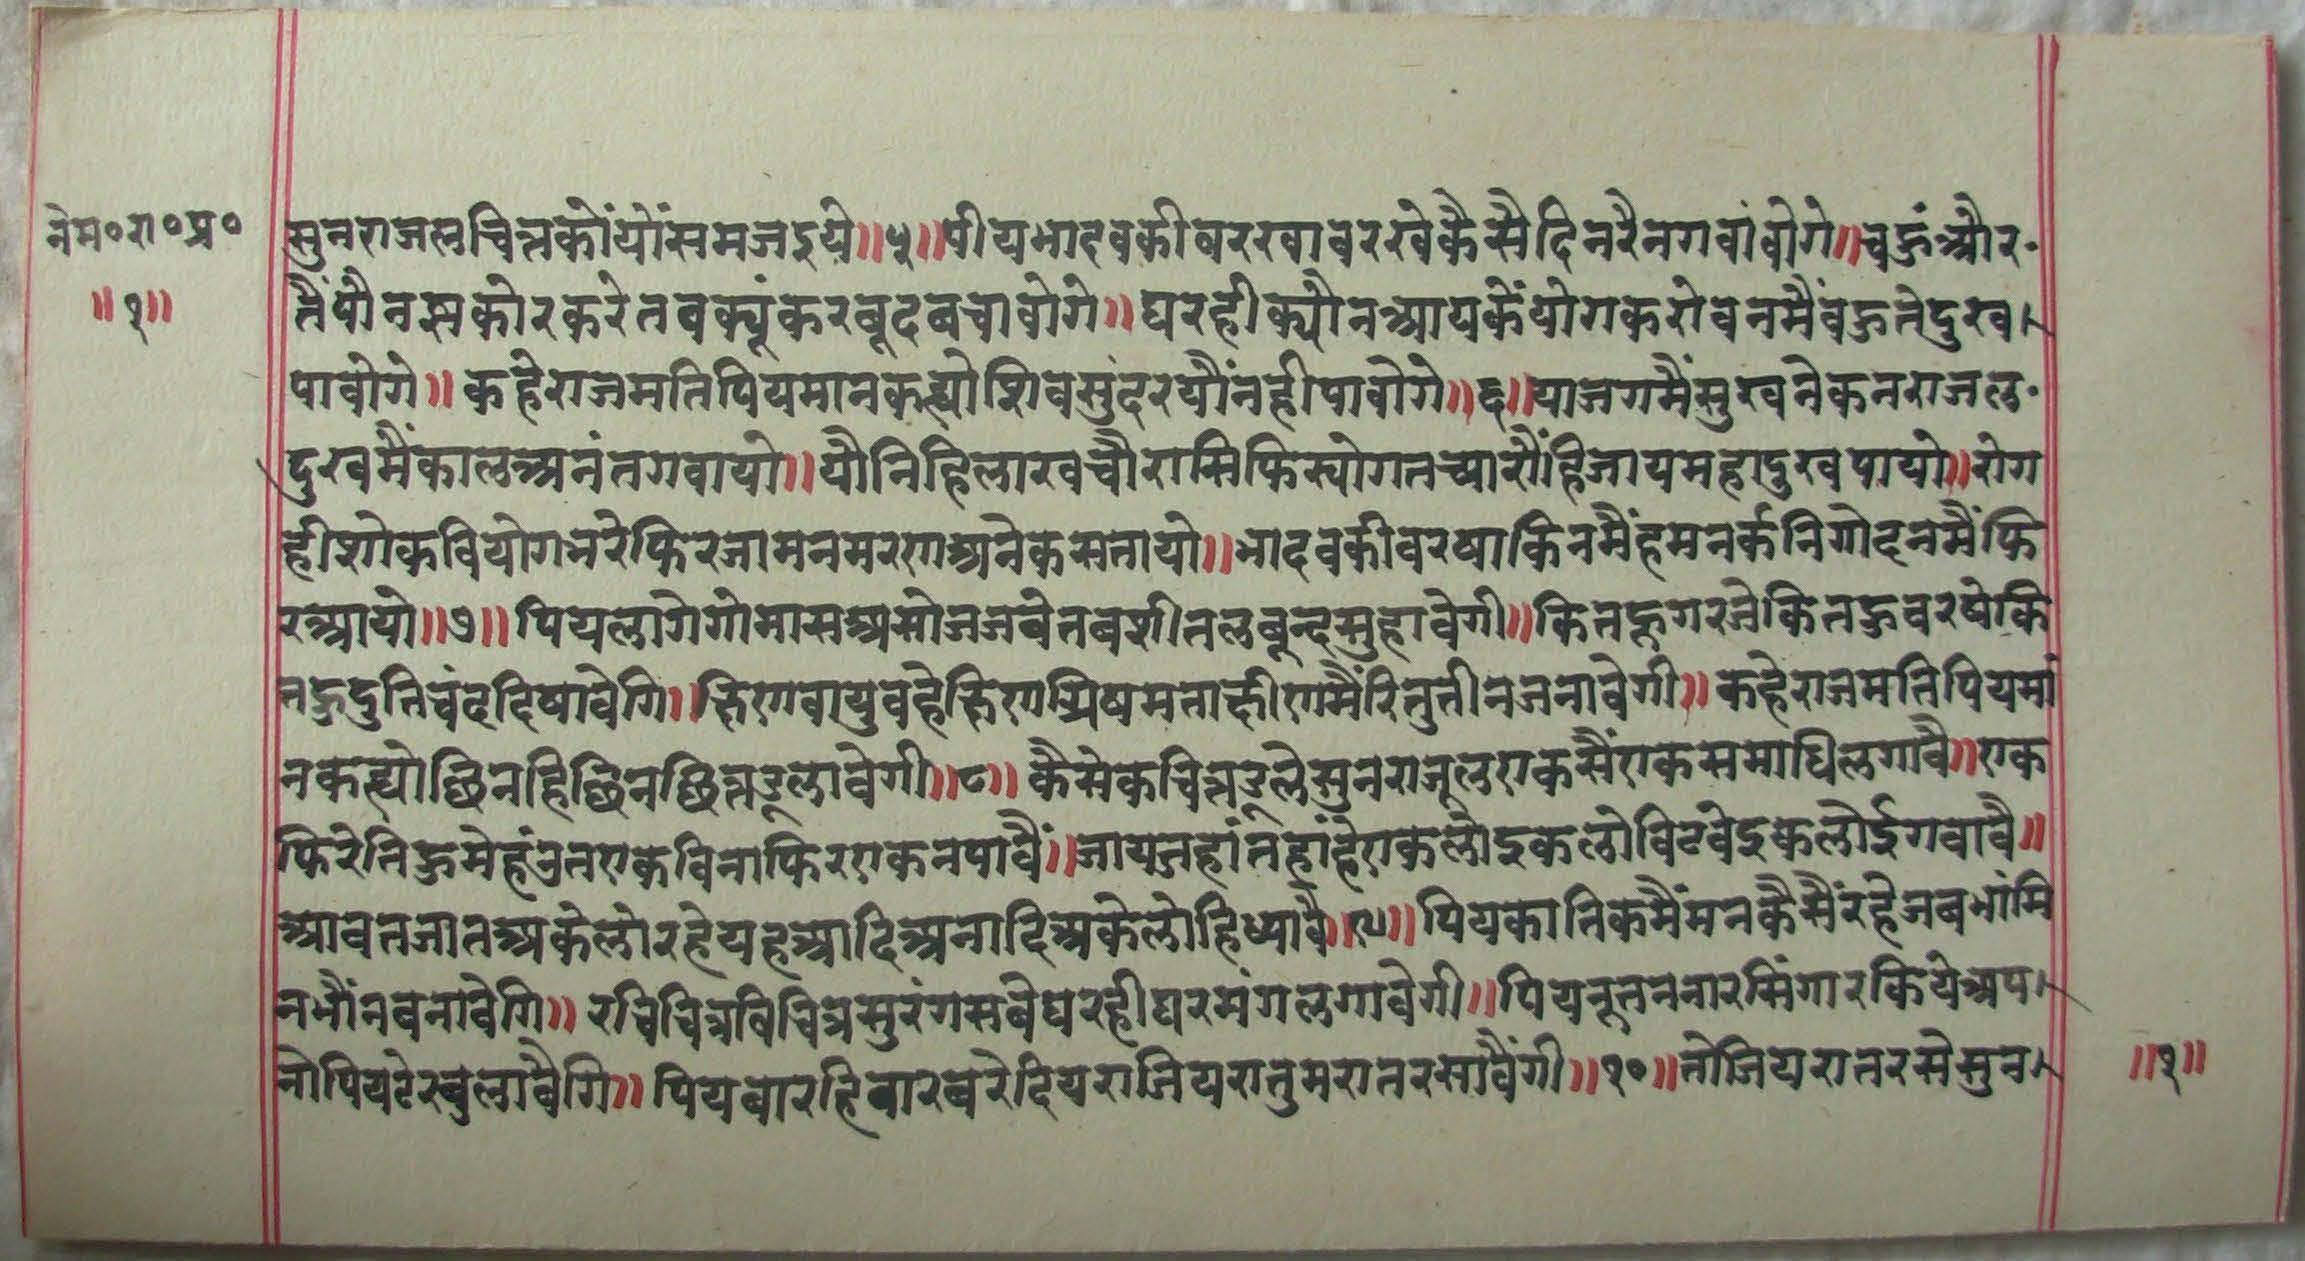 नेम०रा०प्र०
॥१॥
सुनराजलचित्तकोंयोंसमजइये॥५॥पीयभादवकीबरखाबरखेकैसैदिनरैनगवांवोगे॥चहुंऔर
तैंपौनझकोरकरेतबक्यूंकरबूदबचावोगे॥घरहीक्यौनआयकेंयोगकरोबनमैंबहुतेदुख
पावोगे॥कहेराजमतिपियमानकह्योशिवसुंदरयौंनहीपावोगे॥६॥याजगमैंसुखनेकनराजल
दुखमैंकालअनंतगवायो॥यौनिहिलाखचौरासिफिर्योगतच्यारौंहिजायमहादुखपायो॥रोग
हीशोकवियोगभरेफिरजामनमरणअनेकसतायो॥भादवकीवरषाकिनमैंहमनर्कनिगोदनमैंफि
रआयो॥७॥पियलागेगोमासअसोजजबेतबशीतलबून्दसुहावेगी॥कितहूगरजेकितहुवरषेकि
तहुदुतिचंददिषावेगि॥छिणवायुवहेछिणग्रिषमताछीणमैंरितुतीनजनावेगी॥कहेराजमतिपियमां
नकह्योछिनहिछिनछित्तडुलावेगी॥८॥कैसेकचित्तडुलेसुनराजूलएकसैंएकसमाधिलगावै॥एक
फिरेतिहुमेहंउतएकविनाफिरएकनपावैं॥जायजहांतहांहेएकलौइकलोविटवेइकलोईगवावै॥
आवतजातअकेलोरहेयहआदिअनादिअकेलोहिध्यावै॥९॥पियकातिकमैंमनकैसैंरहेजबभांमि
नभौंनबनावेगि॥रचिचित्रविचित्रसुरंगसबेघरहीघरमंगलगावेगी॥पियनूतननारसिंगारकियेअप
नोपियटेरबुलावैगि॥पियबारहिबारबरेदियराजियरातुमरातरसावैंगी॥१०॥तोजियरातरसेसुन
॥१॥